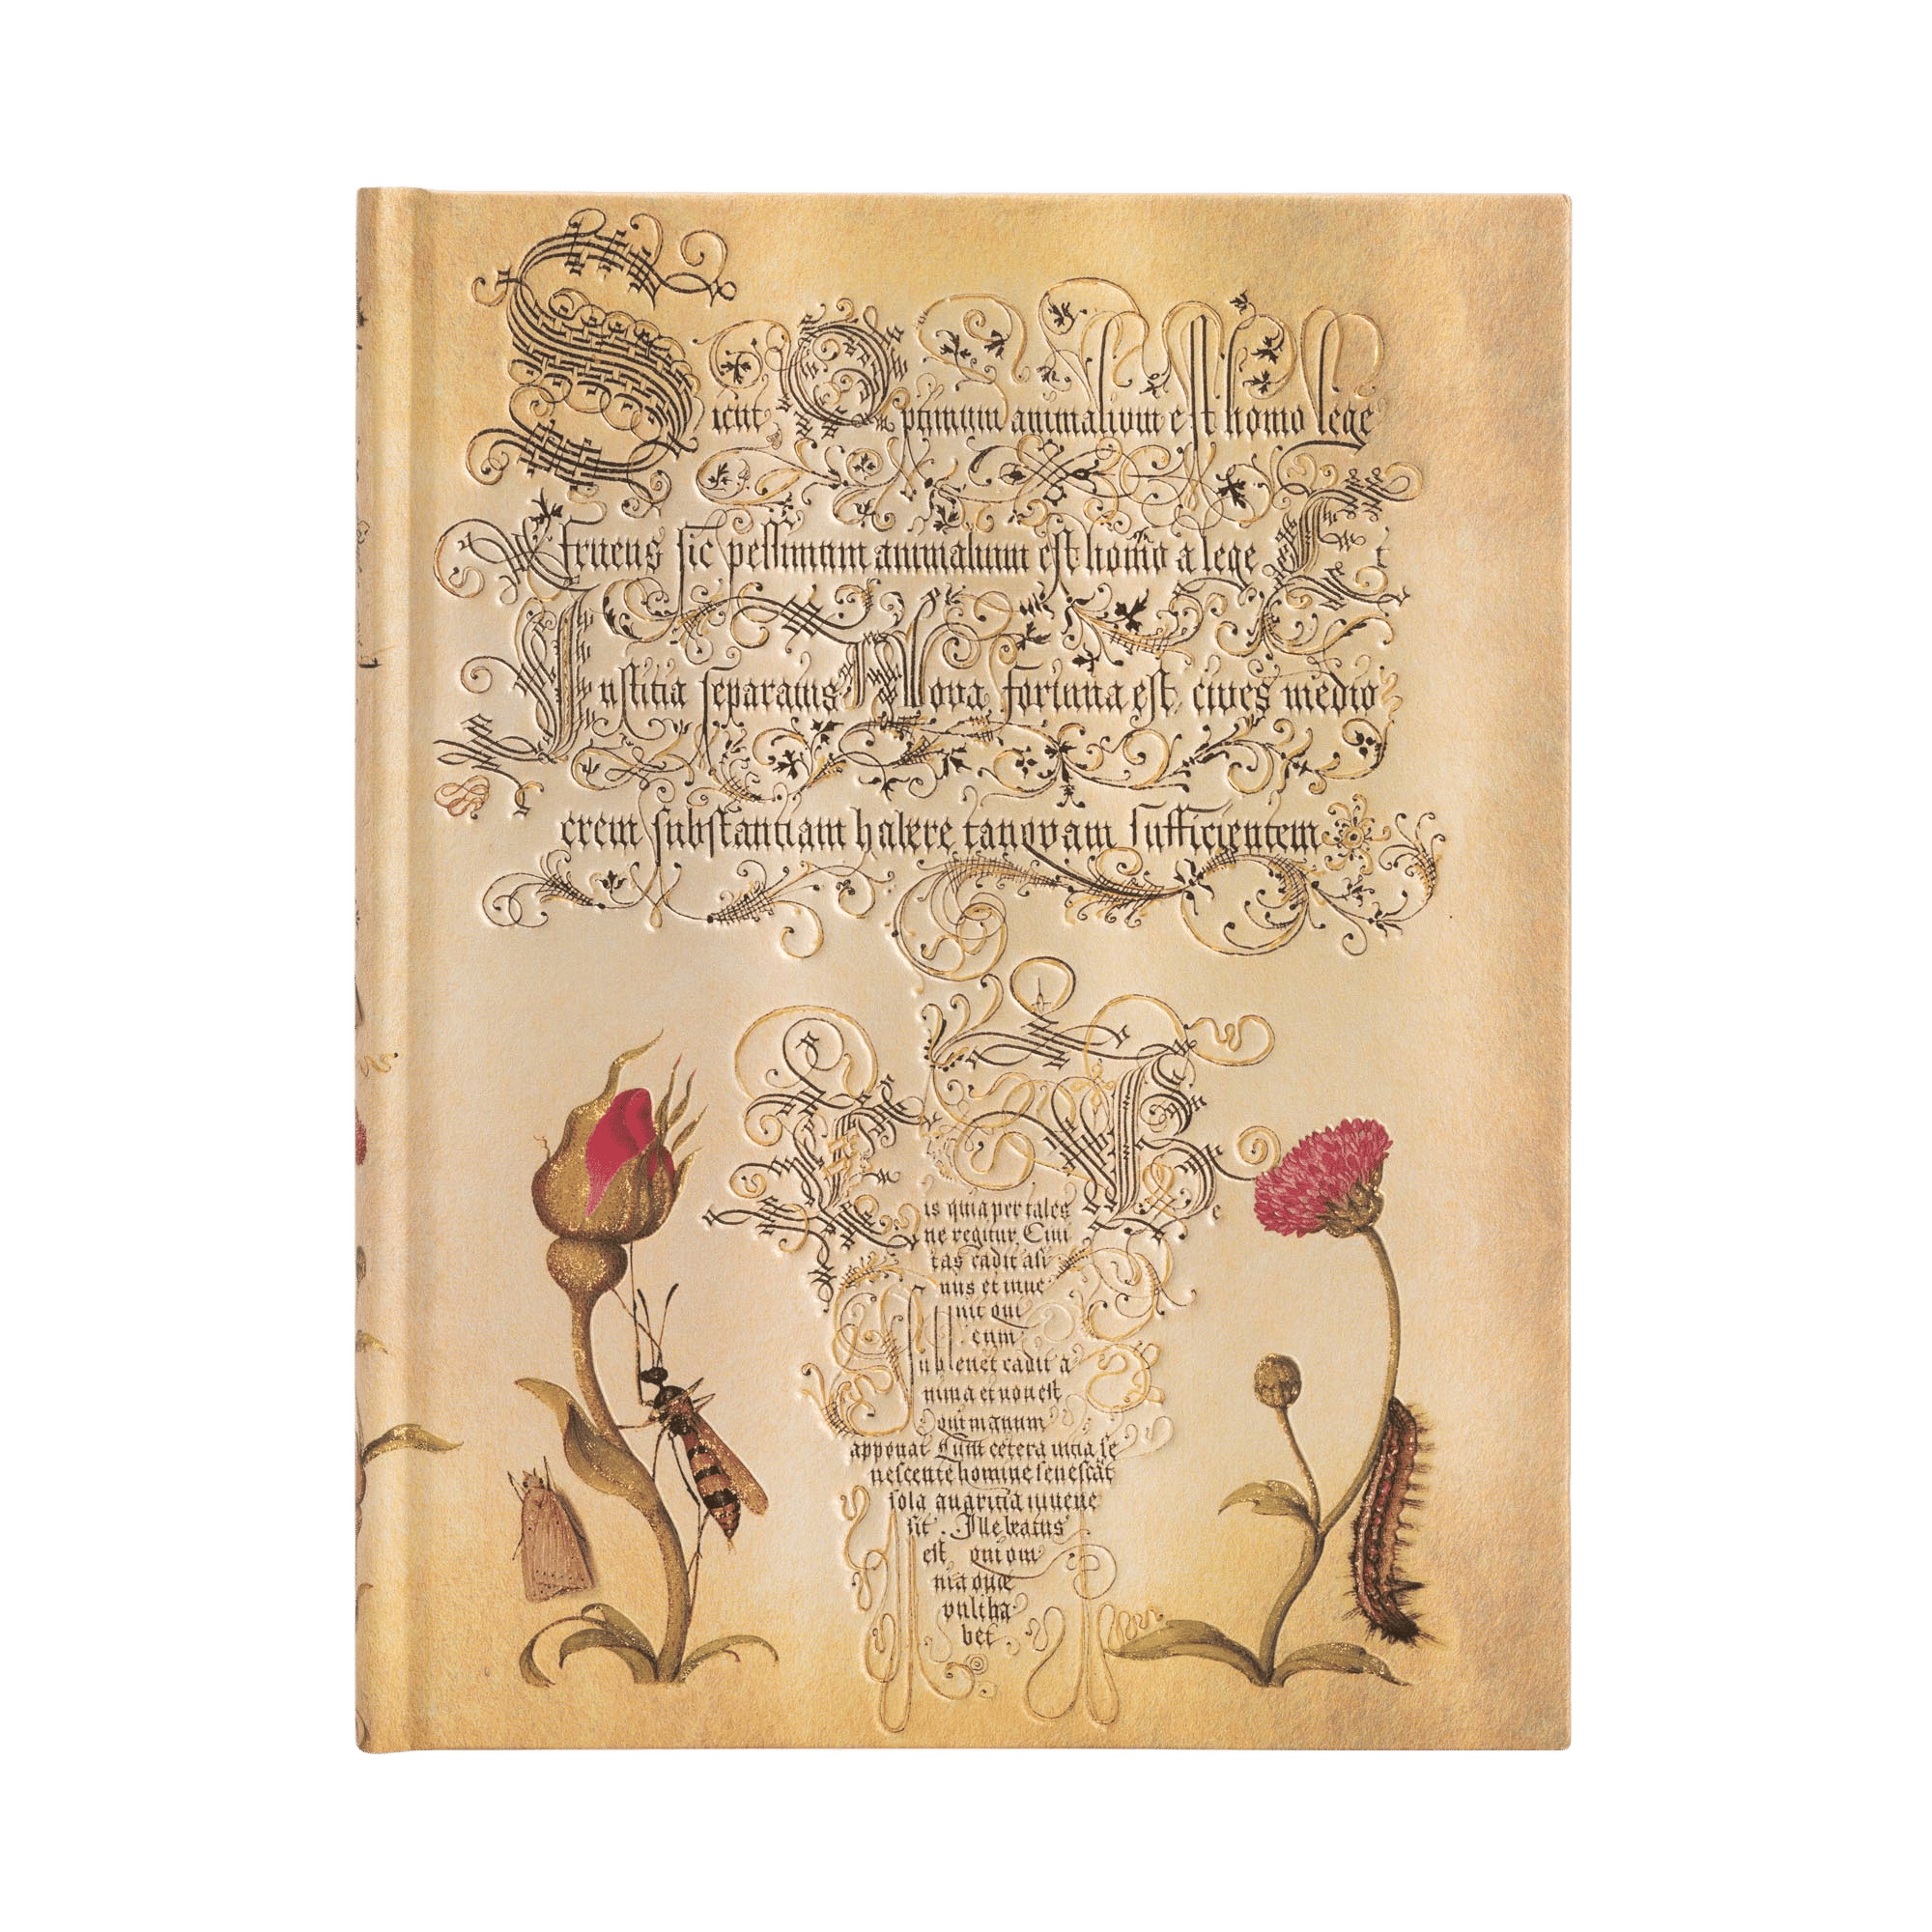 Sicut Optimum animalium est homo lege
fruens sic pessimum animalium est homo a lege Et
Iustitia separatus Nova fortuna est cives medio
crem substantiam habere tanquam sufficientem
is quia per tales
ne regitur, Civi
tas cadit asi
nus et inve
nit qui
eum
sublevet cadit a
nima et non est
qui manum
apponat Cum cetera vitia se
nescente homine senescāt
sola avaritia iuvene
sit. Ille beatus
est qui om
nia quæ
vult ha
bet